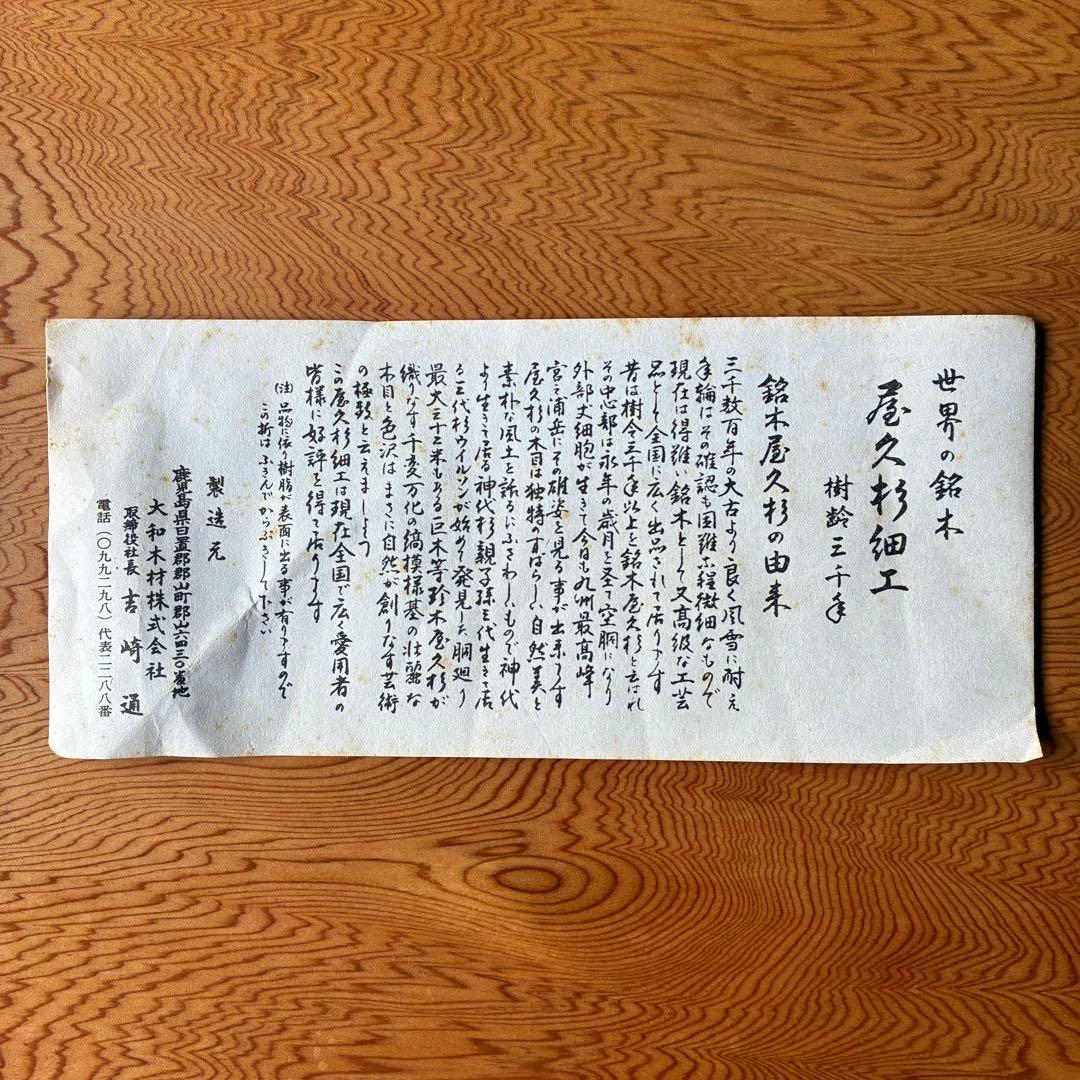 世界の銘木
屋久杉細工
樹齢三千年
銘木屋久杉の由来
三千数百年の太古より良く風雪に耐え
年輪はその確認も困難な程微細なもので
現在は得難い銘木として又高級な工芸
品として全国に広く出品されて居ります
昔は樹令三千年以上を銘木屋久杉と云はれ
その中心部は永年の歳月を至て空胴になり
外部丈細胞が生きて今日も九州最高峰
宮之浦岳にその雄姿を見る事が出来ます
屋久杉の木目は独特のすばらしい自然美と
素朴な風土を語るにふさわしいもので神代
より生きて居る神代杉親子孫三代生きて居
る三代杉ウイルソンが始めて発見した胴廻り
最大三十二米もある巨木等珍木屋久杉が
織りなす千変万化の縞模様基の壮麗な
木目と色沢はまさに自然が創りなす芸術
の極致と云えましょう
この屋久杉細工は現在全国で広く愛用者の
皆様に好評を得て居ります
(注) 品物に依り樹脂が表面に出る事が有りますので
この折はふきんでからぶきして下さい
製造元
鹿児島県日置郡郡山町郡山六四三〇番地
大和木材株式会社
取締役社長 吉崎 通
電話(〇九九二九八)代表二二八八番